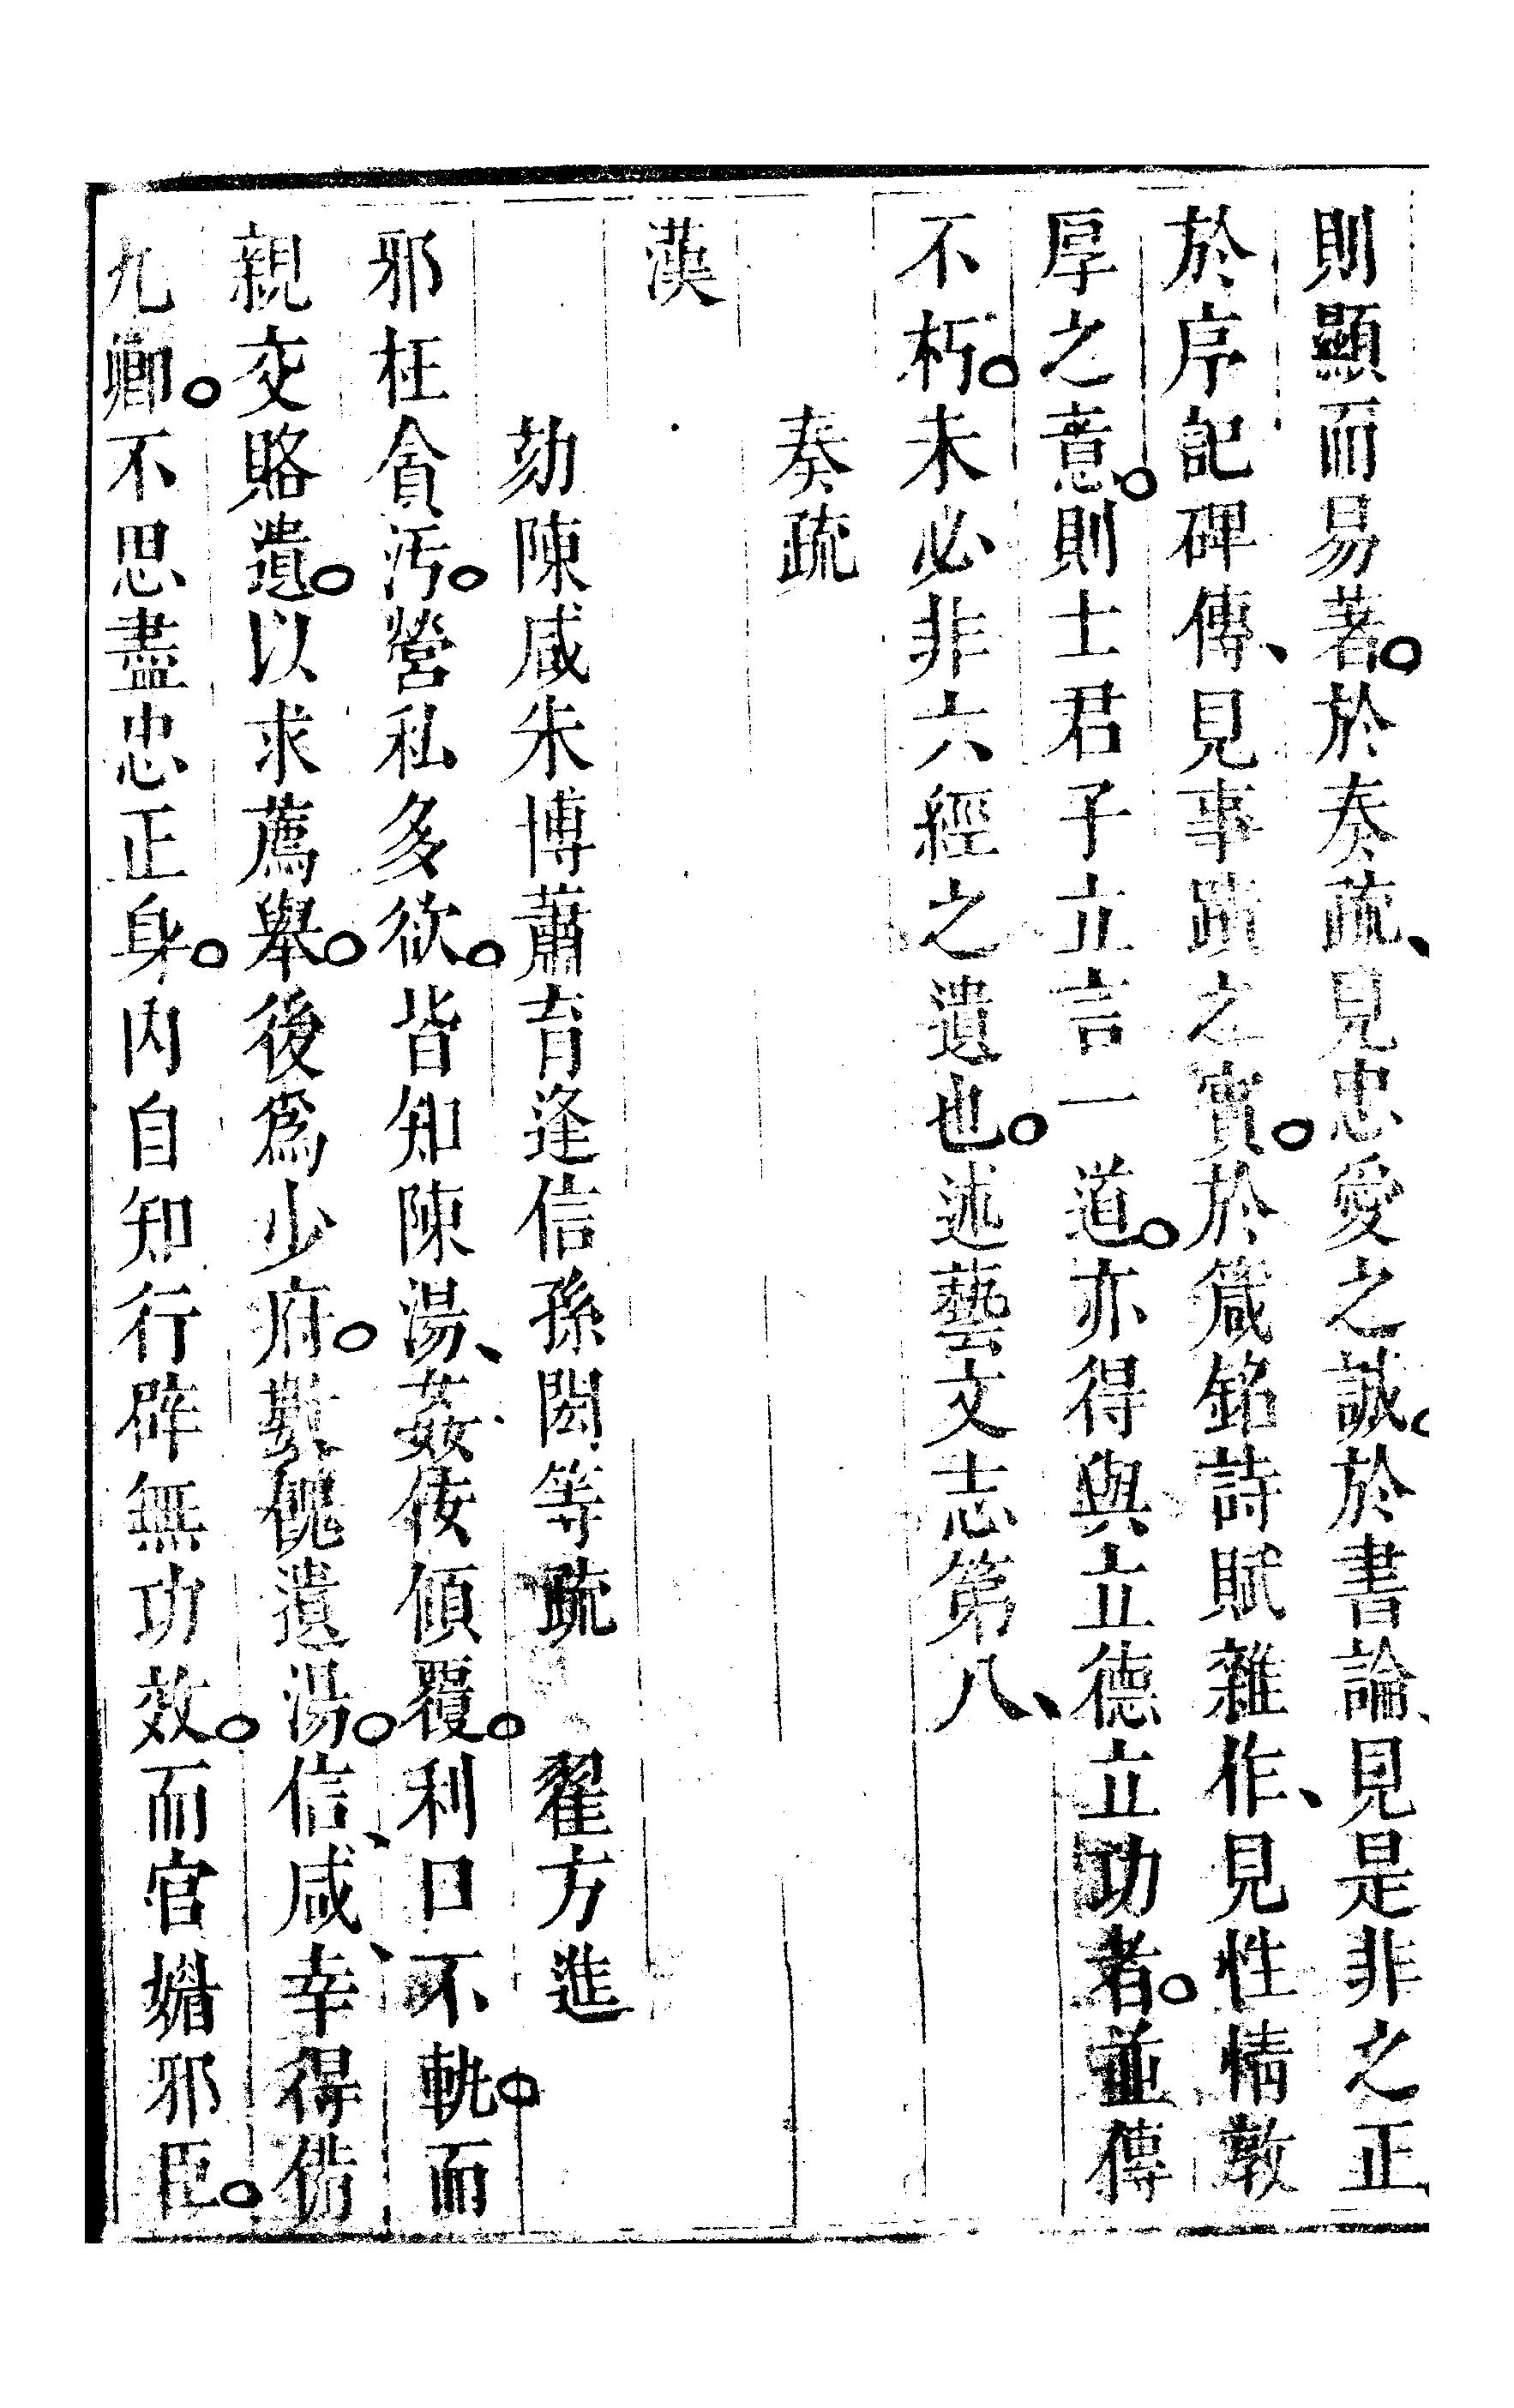 則顯而易著。於奏疏、見忠愛之誠。於書論、見是非之正
於序記碑傳、見事蹟之實。於箴銘詩賦雜作、見性情敦
厚之意。則士君子立言一道。亦得與立德立功者。並傳
不朽。未必非六經之遺也。述藝文志第八、
奏疏
漢
劾陳咸朱博蕭育逢信孫閎等疏 翟方進
邪枉貪污。營私多欲。皆知陳湯、姦佞傾覆。利口不軌。而
親交賂遺。以求薦舉。後爲少府。數餽遺湯。信、咸、幸得備
九卿。不思盡忠正身。內自知行辟無功效。而官媚邪臣。